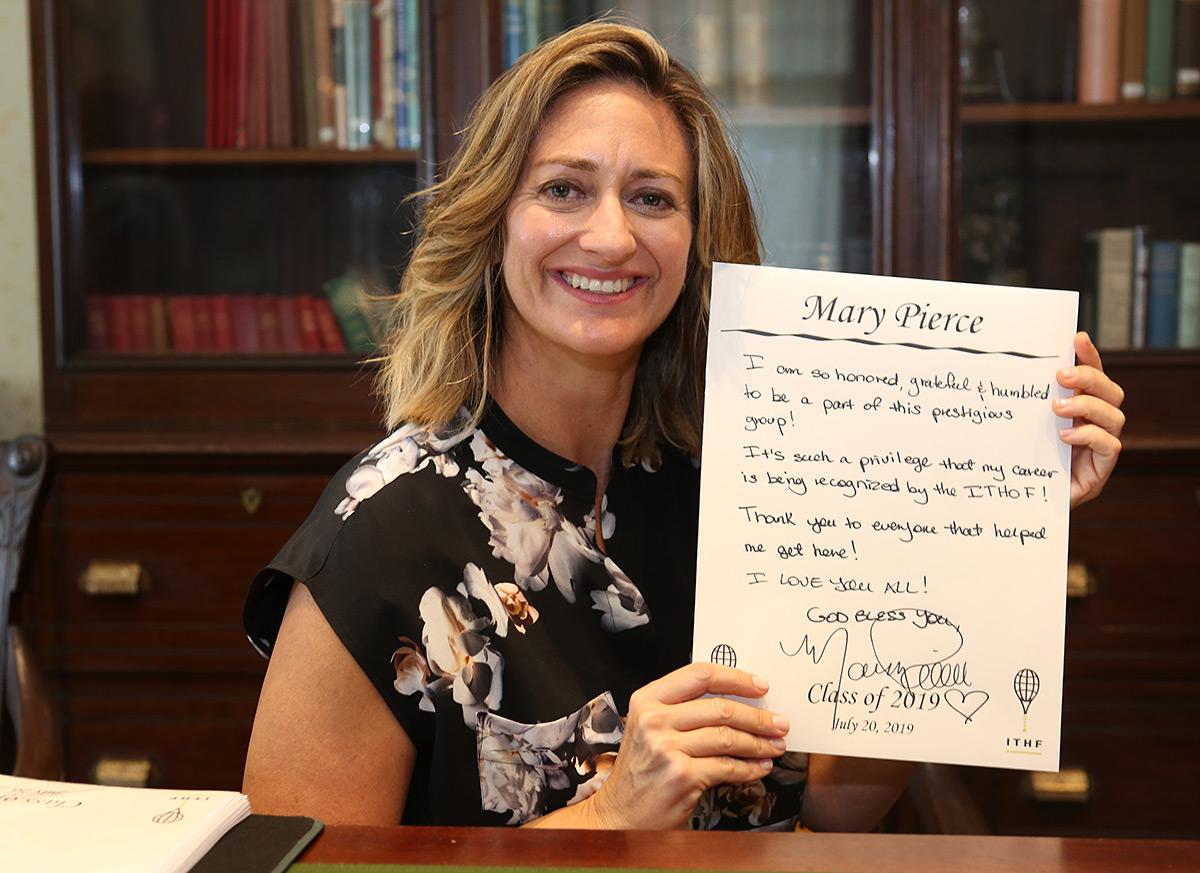 Mary Pierce
I am so honored, grateful & humbled
to be a part of this prestigious
group!
It's such a privilege that my career
is being recognized by the ITHoF!
Thank you to everyone that helped
me get here!
I LOVE YOU ALL!
GOD BLESS YOU,
Mary Pierce
Class of 2019
July 20, 2019
ITHF
Class of
July 20,
ITHF